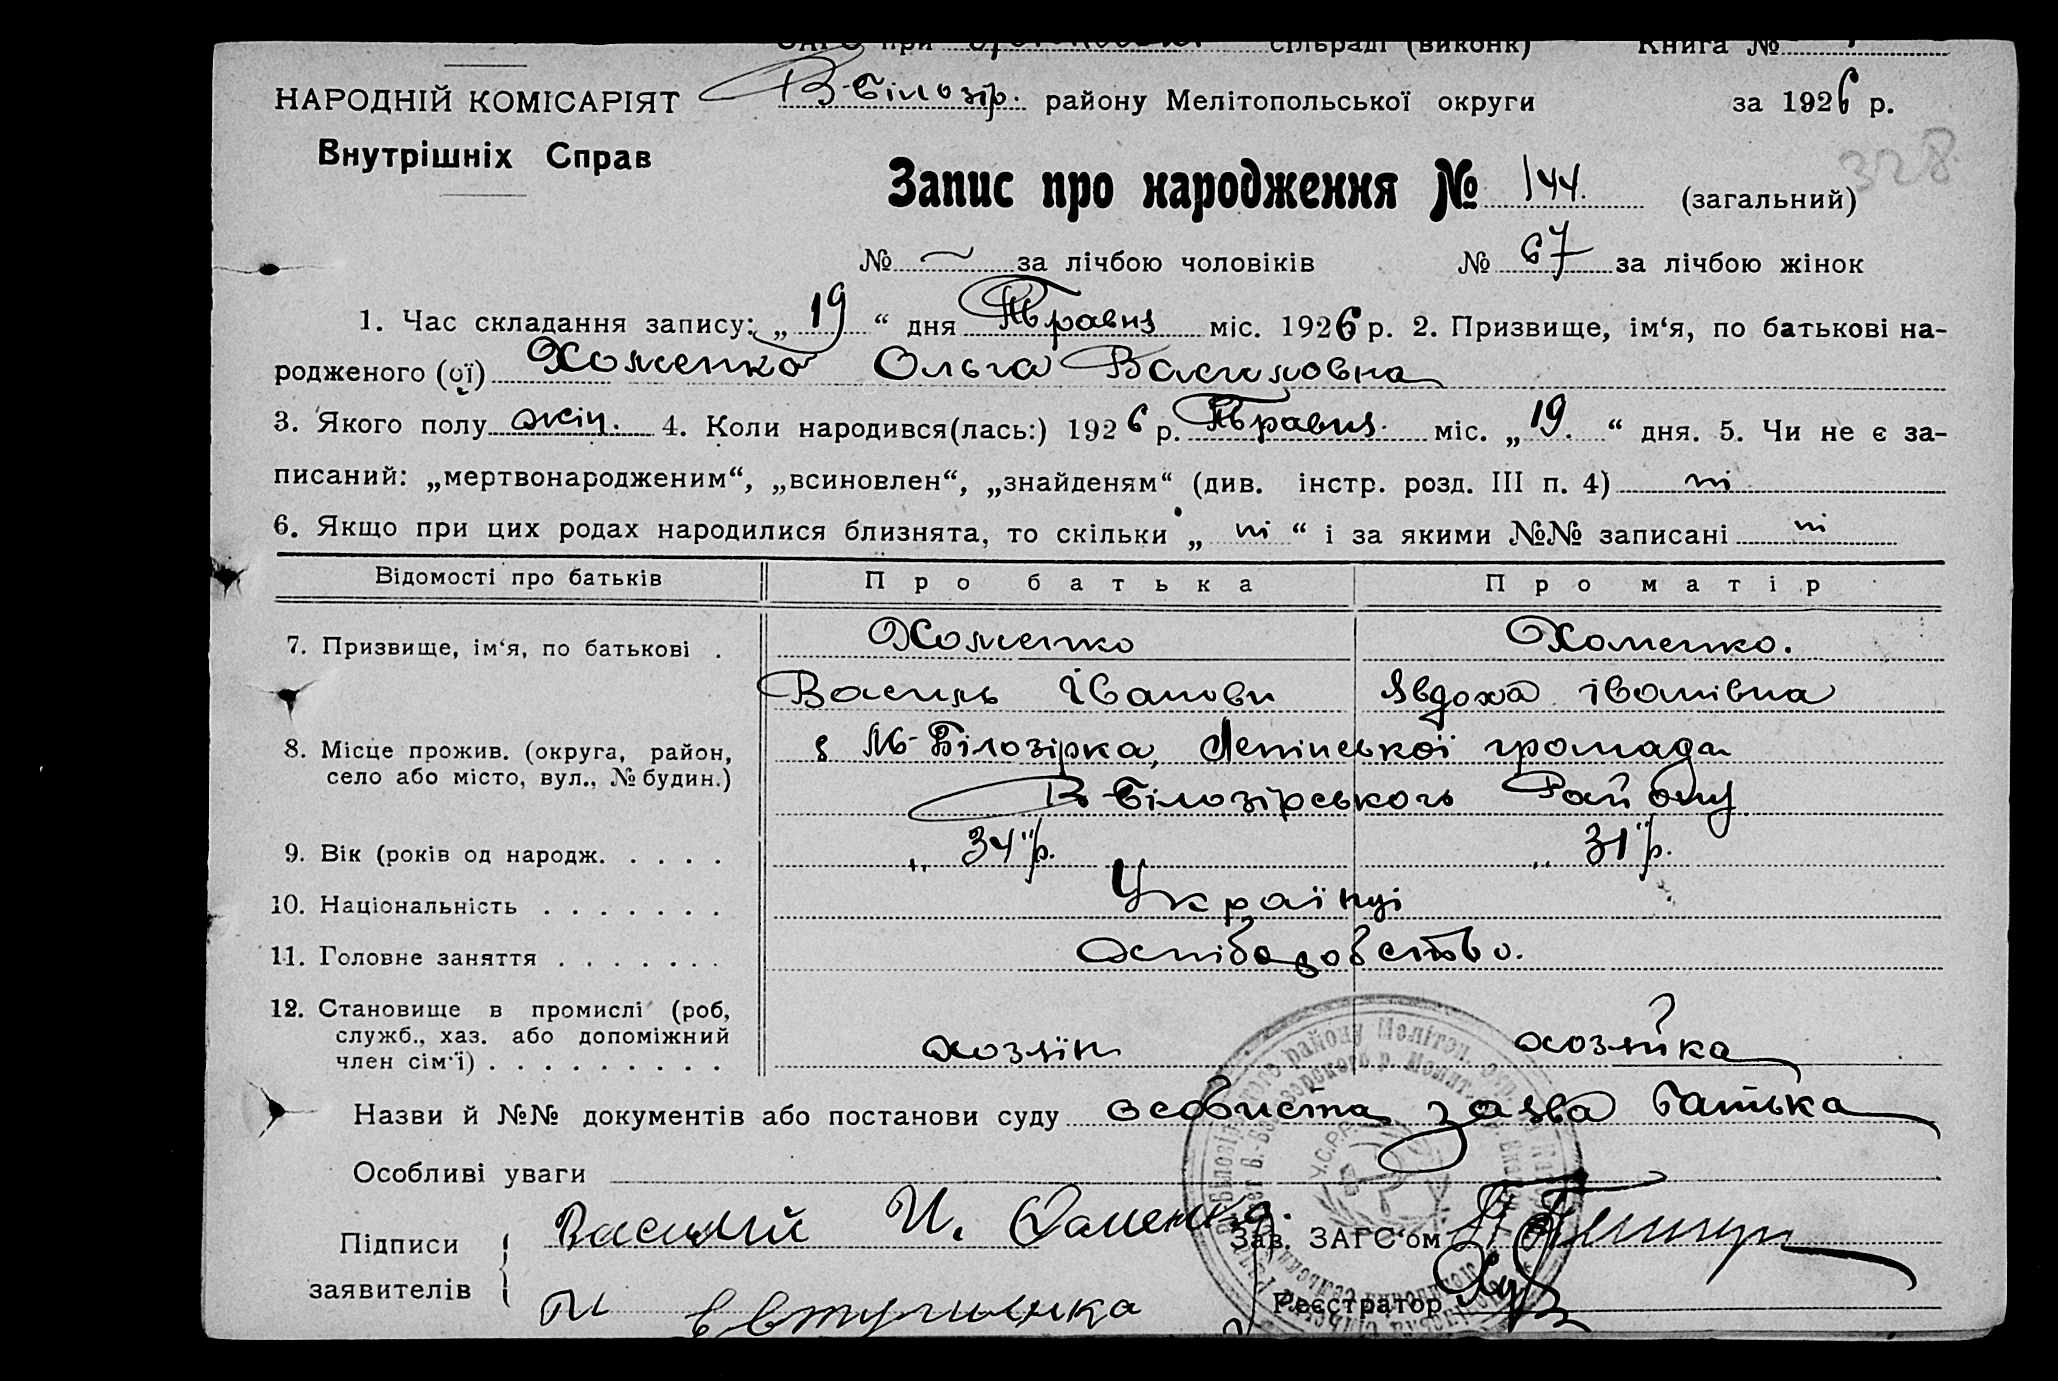 ЗАГС при сільраді (виконк) Книга №
НАРОДНІЙ КОМІСАРІЯТ
Внутрішніх Справ
В-Білозір. району Мелітопольської округи за 1926 р.
328
Запис про народження № 144. (загальний)
№ — за лічбою чоловіків № 67 за лічбою жінок
1. Час складання запису: „ 19 “ дня Травня міс. 1926 р. 2. Призвище, ім‘я, по батькові на-
родженого (ої) Хоменко Ольга Василовна
3. Якого полу жін. 4. Коли народився(лась:) 1926 р. Травня. міс. „ 19. “ дня. 5. Чи не є за-
писаний: „мертвонародженим“, „всиновлен“, „знайденям“ (див. інстр. розд. III п. 4) ні
6. Якщо при цих родах народилися близнята, то скільки „ ні “ і за якими №№ записані ні
Відомості про батьків Про батька Про матір
7. Призвище, ім‘я, по батькові . Хоменко Хоменко.
Василь Іванови Явдоха іванівна
8. Місце прожив. (округа, район,
село або місто, вул., № будин.)
М-Білозірка, Ленінської громади
В-Білозірського Району
9. Вік (років од народж. . . . . „ 34“ р. „ 31“ р.
10. Національність . . . . . . . Українці
11. Головне заняття . . . . . . . хліборобство.
12. Становище в промислі (роб,
служб., хаз. або допоміжний
член сім‘ї) . . . . . . . . . хозяін хозяйка
Назви й №№ документів або постанови суду особиста заява батька
Особливі уваги
Підписи
заявителів
Василий И. Хоменко.
Зав. ЗАГС‘ом
Реєстратор
У.С.Р.Р.